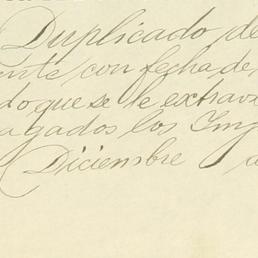 Duplicado de
ente con fecha de
do que se le extrav
agados los Imp
Diciembre